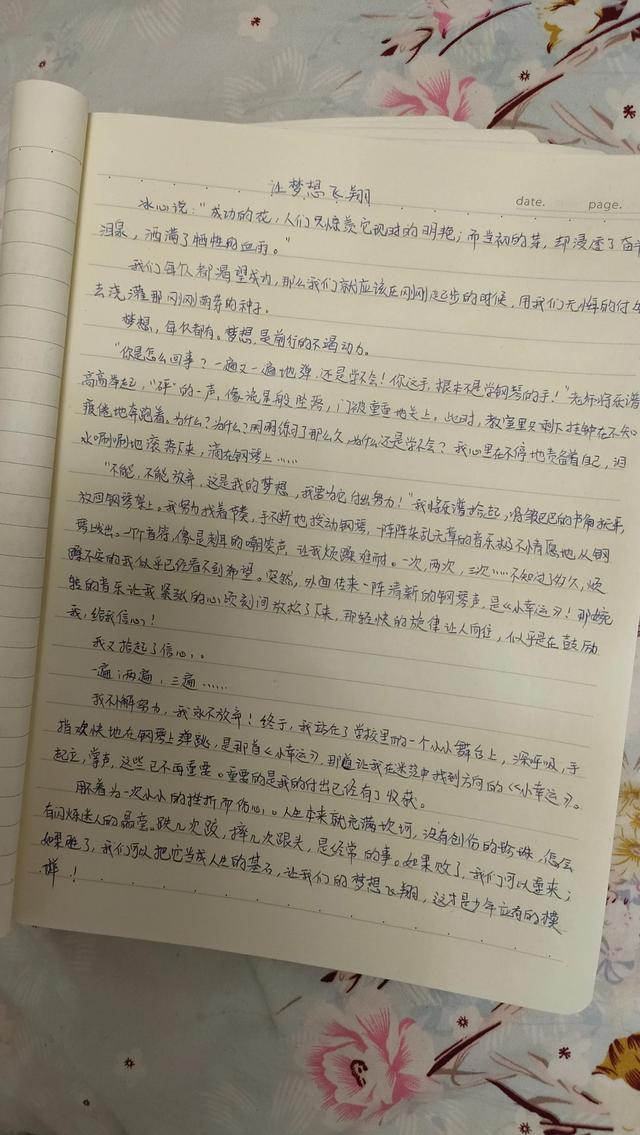 让梦想飞翔
date. page.
冰心说："成功的花，人们只惊羡它现时的明艳；而当初的芽，却浸透了奋斗
泪泉，洒满了牺牲的血雨。"
我们每个人都渴望成功，那么我们就应该在刚刚起步的时候，用我们无悔的付出
去浇灌那刚刚萌芽的种子。
梦想，每个人都有。梦想，是前行的不竭动力。
"你是怎么回事？一遍又一遍地弹，还是学不会！你这手，根本不是学钢琴的手！"老师将琴谱
高高举起，"砰"的一声，像流星般坠落，门被重重地关上。此时，教室里只剩下挂钟在不知
疲倦地奔跑着。为什么？为什么？明明练习了那么久，为什么还是学不会？我心里在不停地责备着自己，泪
水唰唰地滚落下来，滴在钢琴上……
"不能，不能放弃，这是我的梦想，我要为它付出努力！"我将琴谱拾起，将皱巴巴的书角抚平，
放回钢琴架上。我努力找着节奏，手不断地拨动钢琴，一阵阵杂乱无章的音乐极不情愿地从钢
琴上发出。一个个音符，像是刺耳的嘲笑声，让我烦躁难耐。一次，两次，三次……不知过了多久，烦
躁不安的我似乎已经看不到希望。突然，外面传来一阵清新的钢琴声，是《小幸运》！那婉
转的音乐让我紧张的心顷刻间放松了下来，那轻快的旋律让人向往，似乎是在鼓励
我，给我信心！
我又拾起了信心。
一遍，两遍，三遍……
我不懈努力，我永不放弃！终于，我站在了学校里的一个小小舞台上，深呼吸，手
指欢快地在钢琴上弹跳，是那首《小幸运》，那首让我在迷茫中找到方向的《小幸运》。
起立，掌声，这些已不再重要。重要的是我的付出已经有了收获。
用不着为一次小小的挫折而伤心。人生本来就充满坎坷，没有创伤的珍珠，怎会
有闪烁迷人的晶莹。跌几次跤，摔几次跟头，是经常的事。如果败了，我们可以重来；
如果胜了，我们可以把它当成人生的基石，让我们的梦想飞翔，这才是少年应有的模
样！